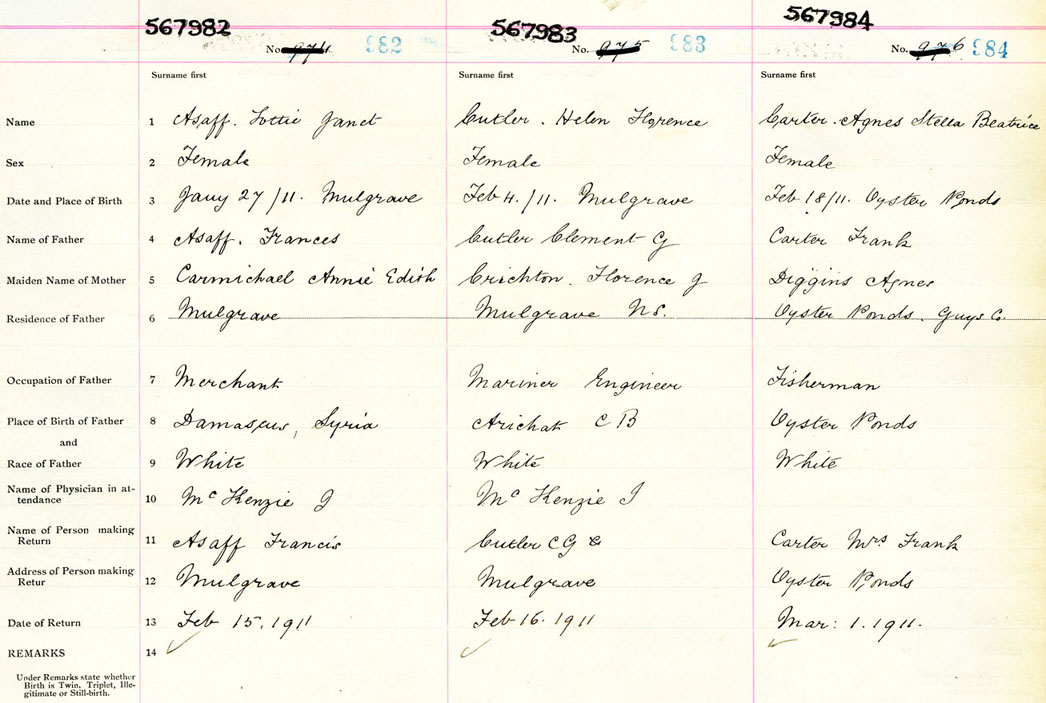 567982 567983 567984
No. 974 982 No. 975 983 No. 976 984
Surname first Surname first Surname first
Name 1 Asaff. Lottie Janet Cutler. Helen Florence Carter. Agnes Stella Beatrice
Sex 2 Female Female Female
Date and Place of Birth 3 Jany 27/11. Mulgrave Feb 4./11. Mulgrave Feb 18/11. Oyster Ponds
Name of Father 4 Asaff. Frances Cutler Clement G Carter Frank
Maiden Name of Mother 5 Carmichael Annie Edith Crichton. Florence J Diggins Agnes
Residence of Father 6 Mulgrave Mulgrave NS. Oyster Ponds. Guys Co.
Occupation of Father 7 Merchant Mariner Engineer Fisherman
Place of Birth of Father 8 Damascus, Syria Arichat C B Oyster Ponds
and
Race of Father 9 White White White
Name of Physician in at-
tendance 10 McKenzie J McKenzie J
Name of Person making
Return 11 Asaff Francis Cutler C G Carter Mrs Frank
Address of Person making
Retur 12 Mulgrave Mulgrave Oyster Ponds
Date of Return 13 Feb 15, 1911 Feb 16. 1911 Mar: 1. 1911.
REMARKS 14
Under Remarks state whether
Birth is Twin, Triplet, Ille-
gitimate or Still-birth.